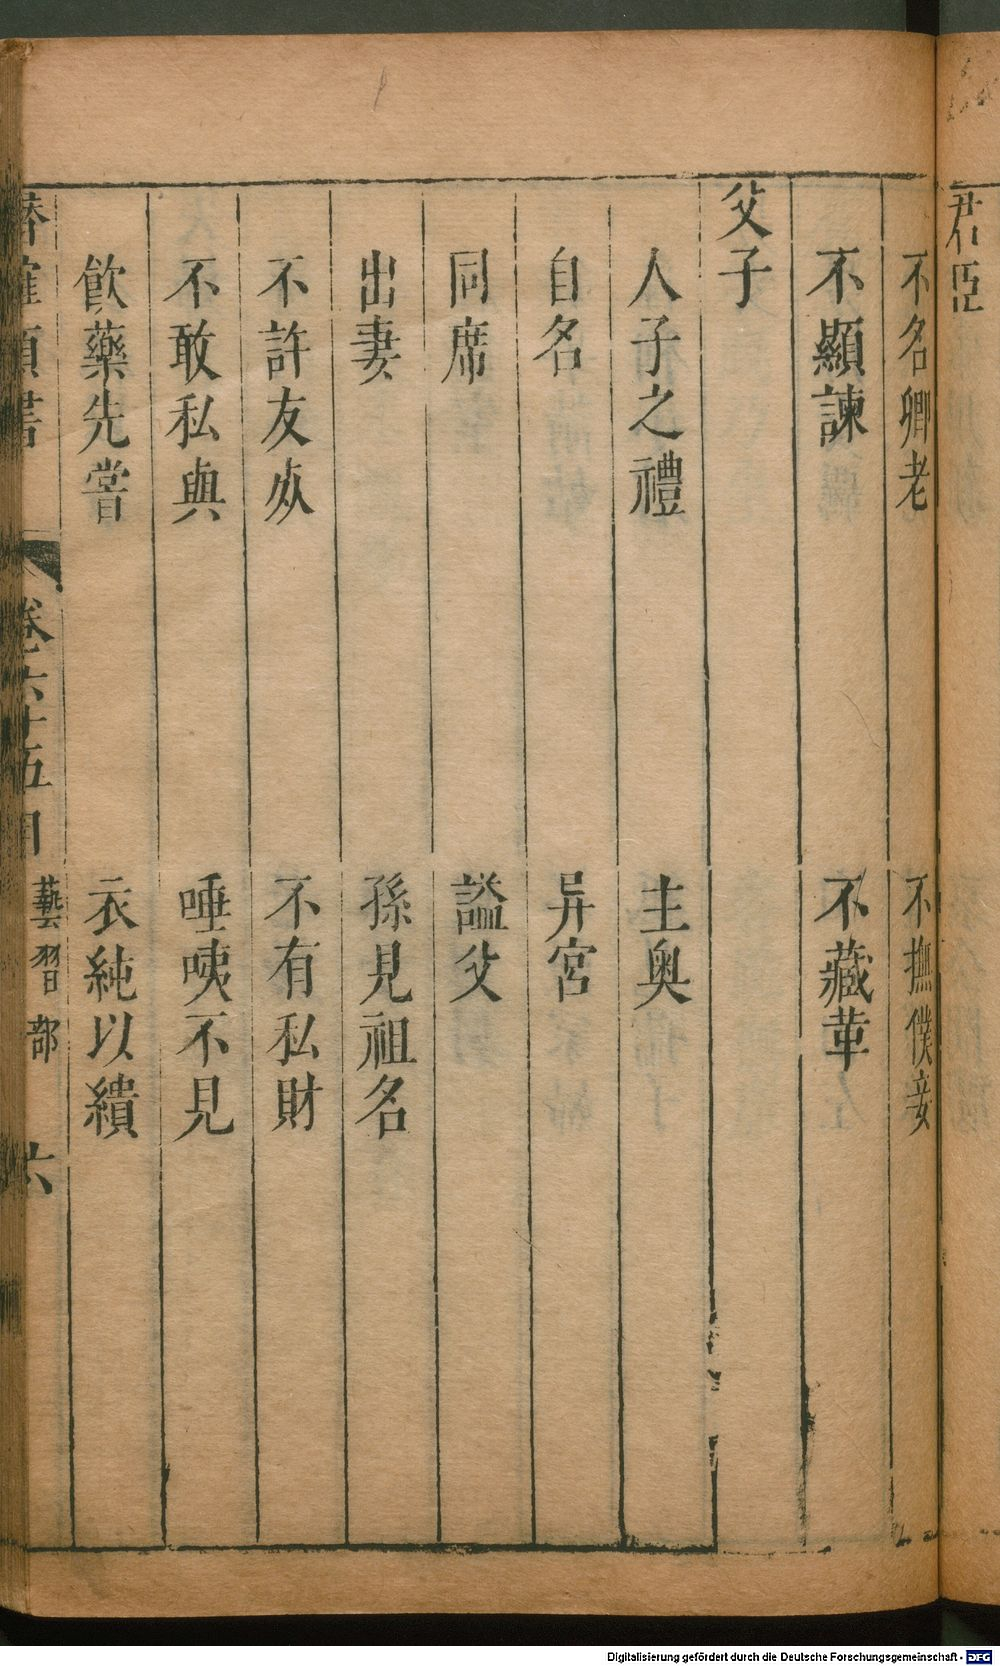 君臣
不名卿老　不撫僕妾
不顯諫　不藏革
父子
人子之禮　主奧
自名　异宮
同席　謚父
出妻　孫見祖名
不許友死　不有私財
不敢私與　唾咦不見
飲藥先嘗　衣純以繢
潛確類書　卷六十五目　藝習部　六
Digitalisierung gefördert durch die Deutsche Forschungsgemeinschaft - DFG